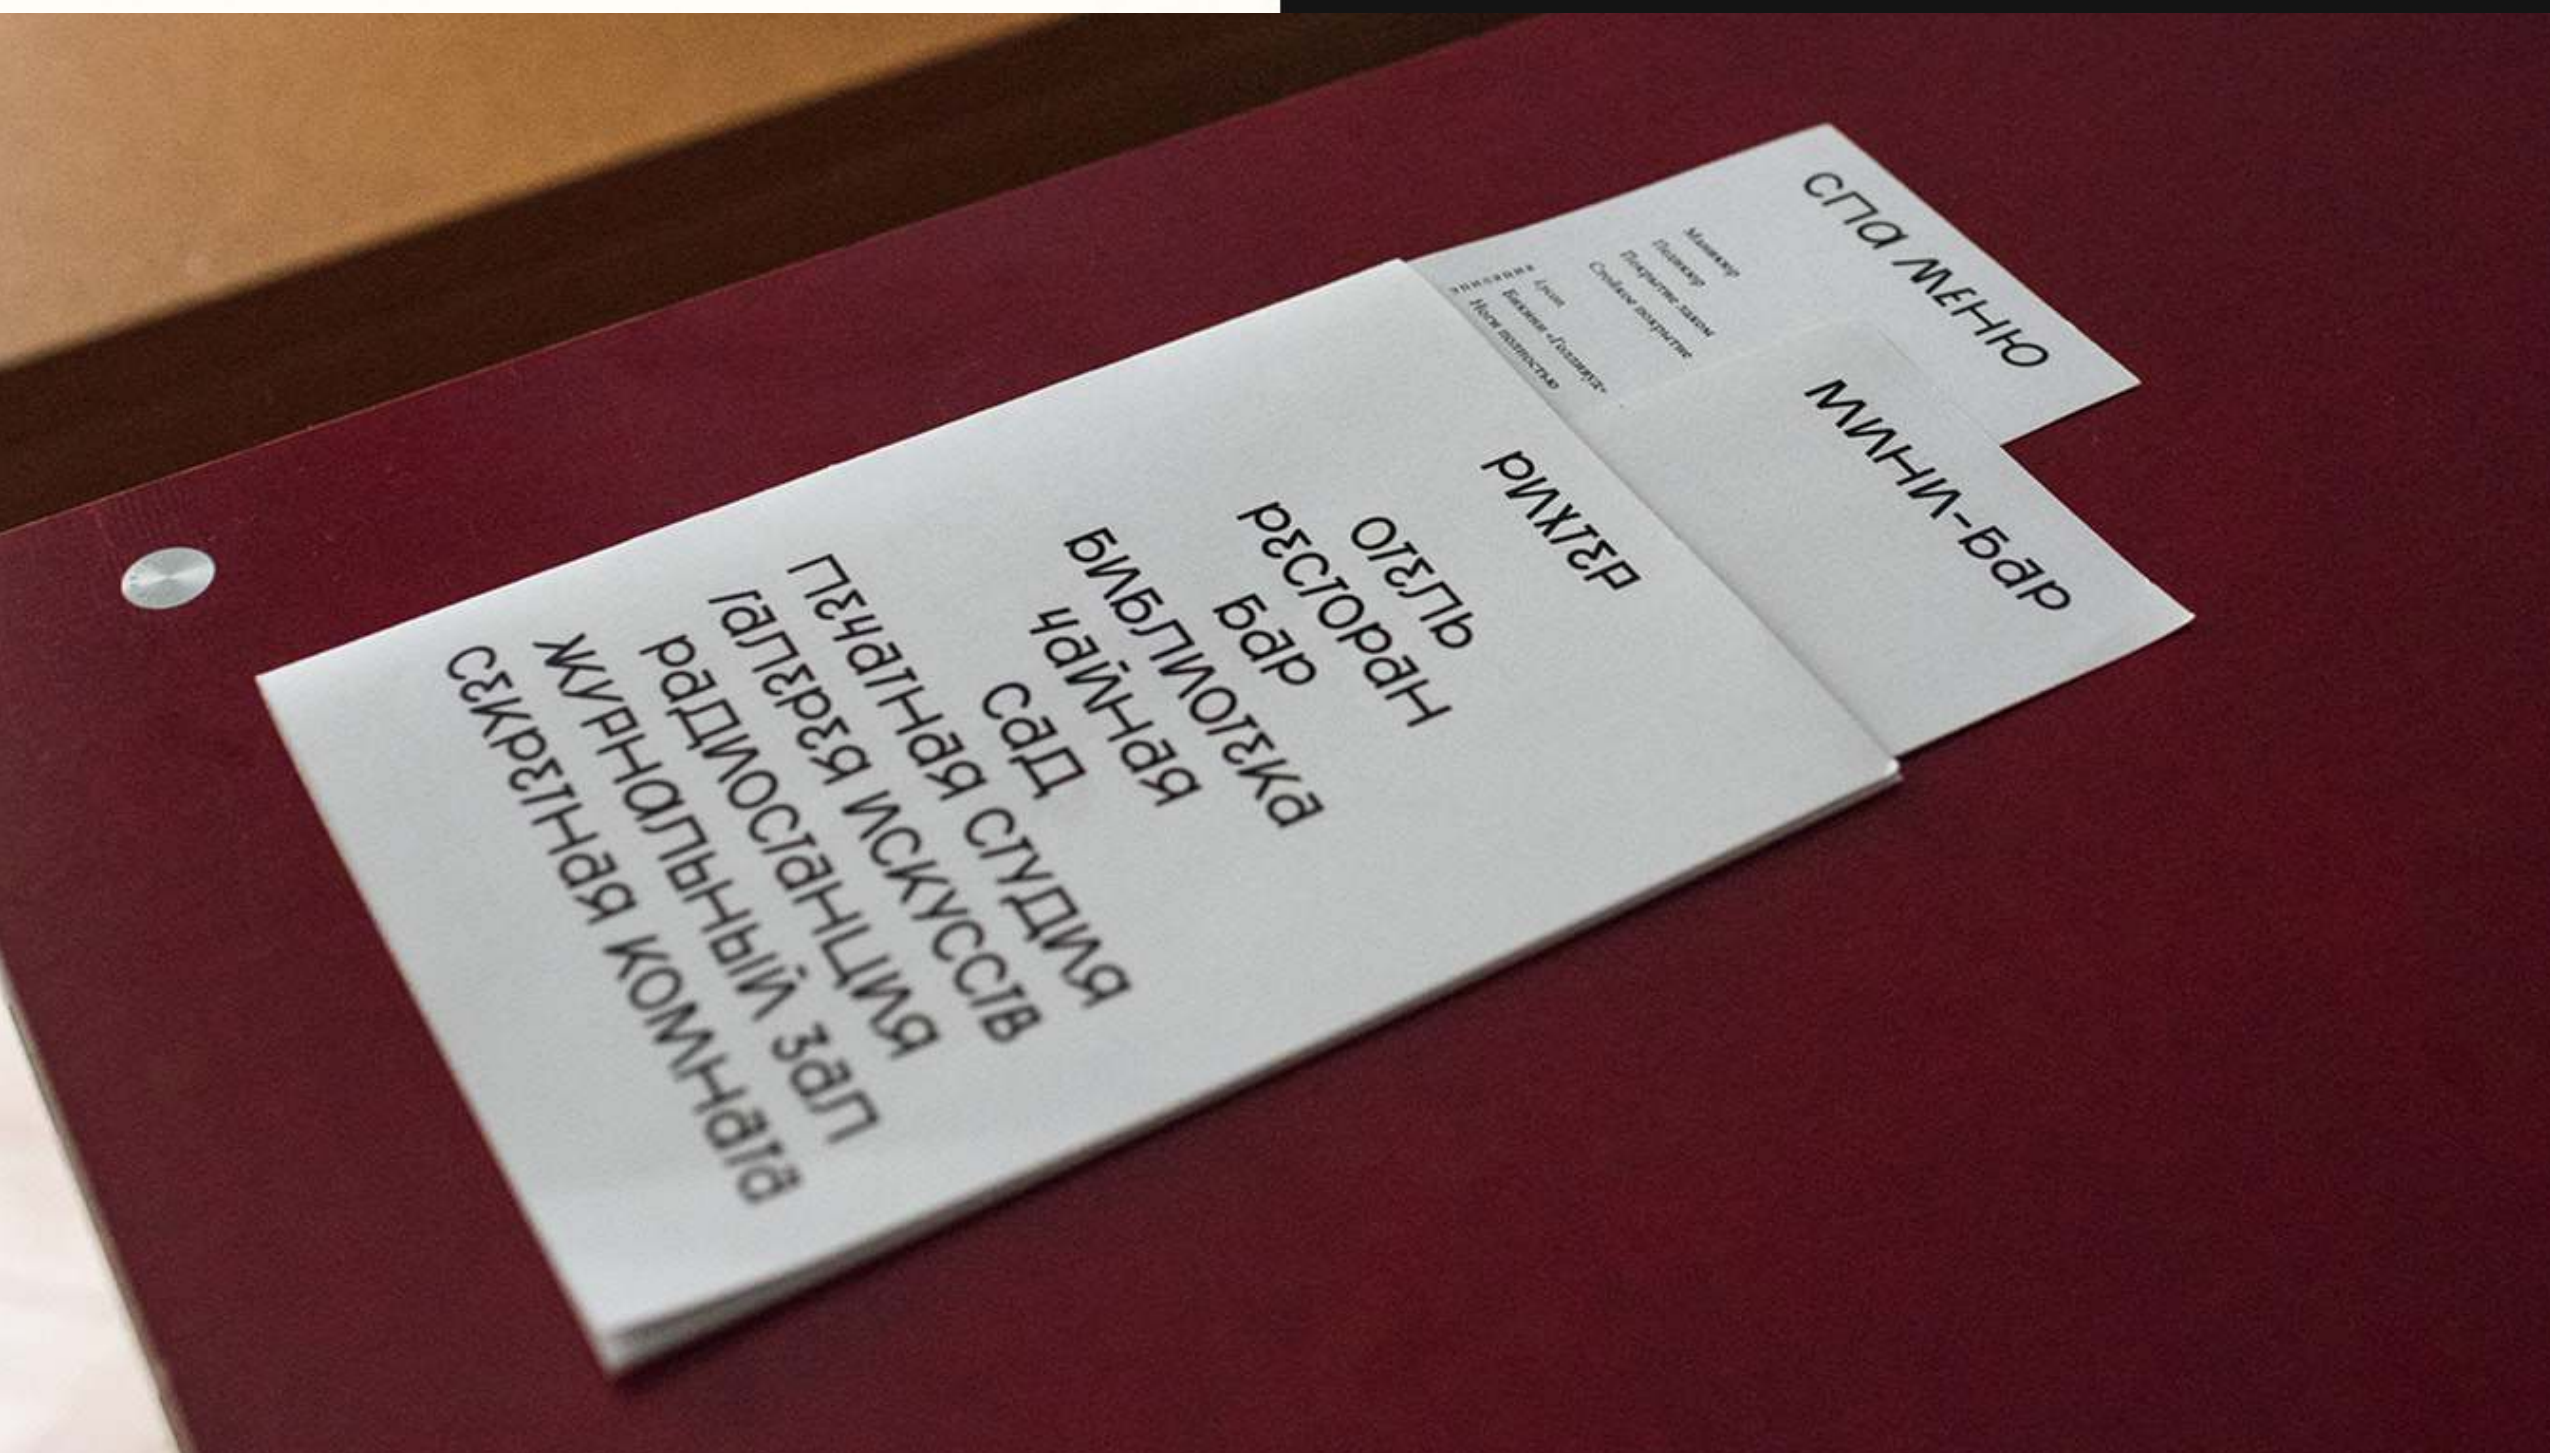 спа меню
Маникюр
Педикюр
Покрытие лаком
Стойкое покрытие
эпиляция
Бикини «Голливуд»
Ноги полностью
мини-бар
рихтер
отель
ресторан
бар
библиотека
чайная
сад
печатная студия
галерея искусств
радиостанция
журнальный зал
секретная комната